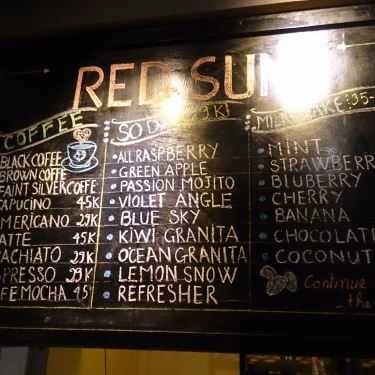 RED SUN
COFFEE
BLACK COFFEE
BROWN COFFE
FAINT SILVER COFFE
CAPUCINO 45K
AMERICANO 29K
LATTE 45K
MACHIATO 29K
ESPRESSO 29K
CAFE MOCHA 45
ALL RASPBERRY
GREEN APPLE
PASSION MOJITO
VIOLET ANGLE
BLUE SKY
KIWI GRANITA
OCEAN GRANITA
LEMON SNOW
REFRESHER
35-
MINT
STRAWBERR
BLUBERRY
CHERRY
BANANA
CHOCOLATE
COCONUT
Continue
the